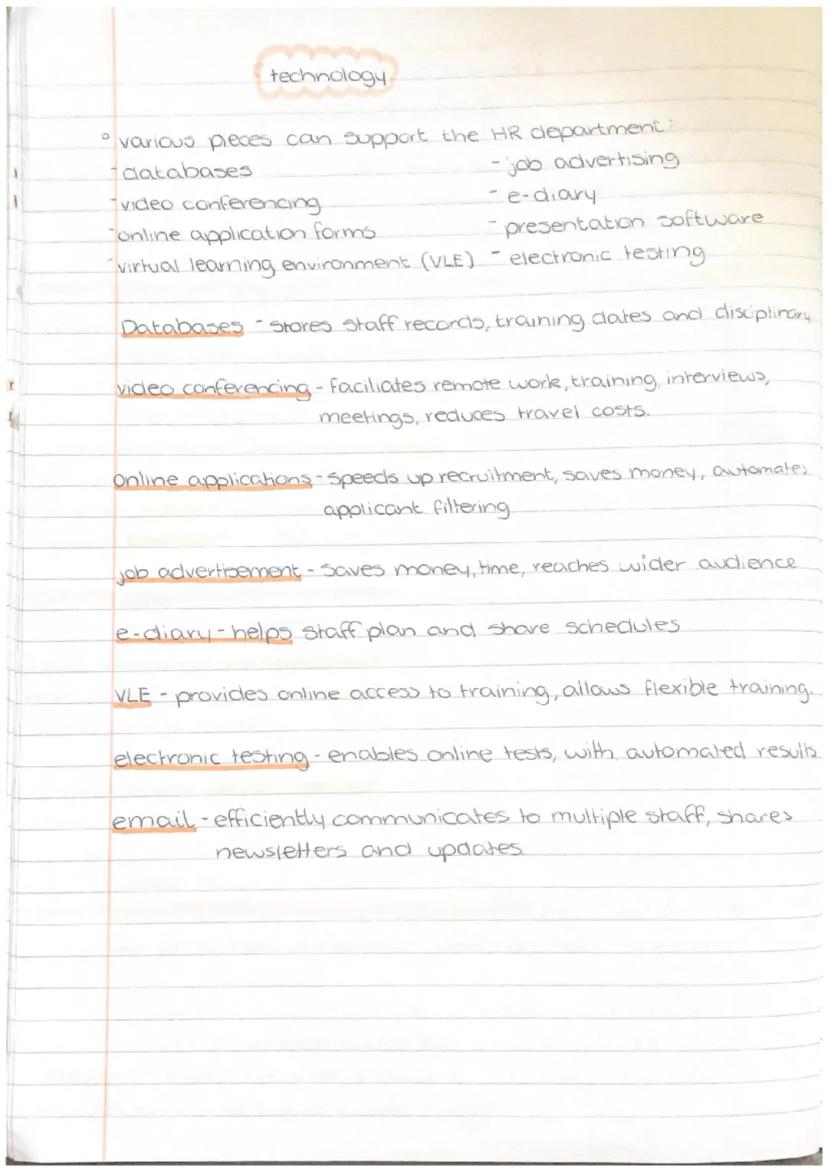 technology
° various pieces can support the HR department:
- databases - job advertising
- video conferencing - e-diary
- online application forms - presentation software
- virtual learning environment (VLE) - electronic testing
Databases - stores staff records, training dates and disciplinary
video conferencing - faciliates remote work, training, interviews,
meetings, reduces travel costs.
online applications - speeds up recruitment, saves money, automates
applicant filtering
job advertisement - saves money, time, reaches wider audience
e-diary - helps staff plan and share schedules
VLE - provides online access to training, allows flexible training.
electronic testing - enables online tests, with automated results
email - efficiently communicates to multiple staff, shares
newsletters and updates.